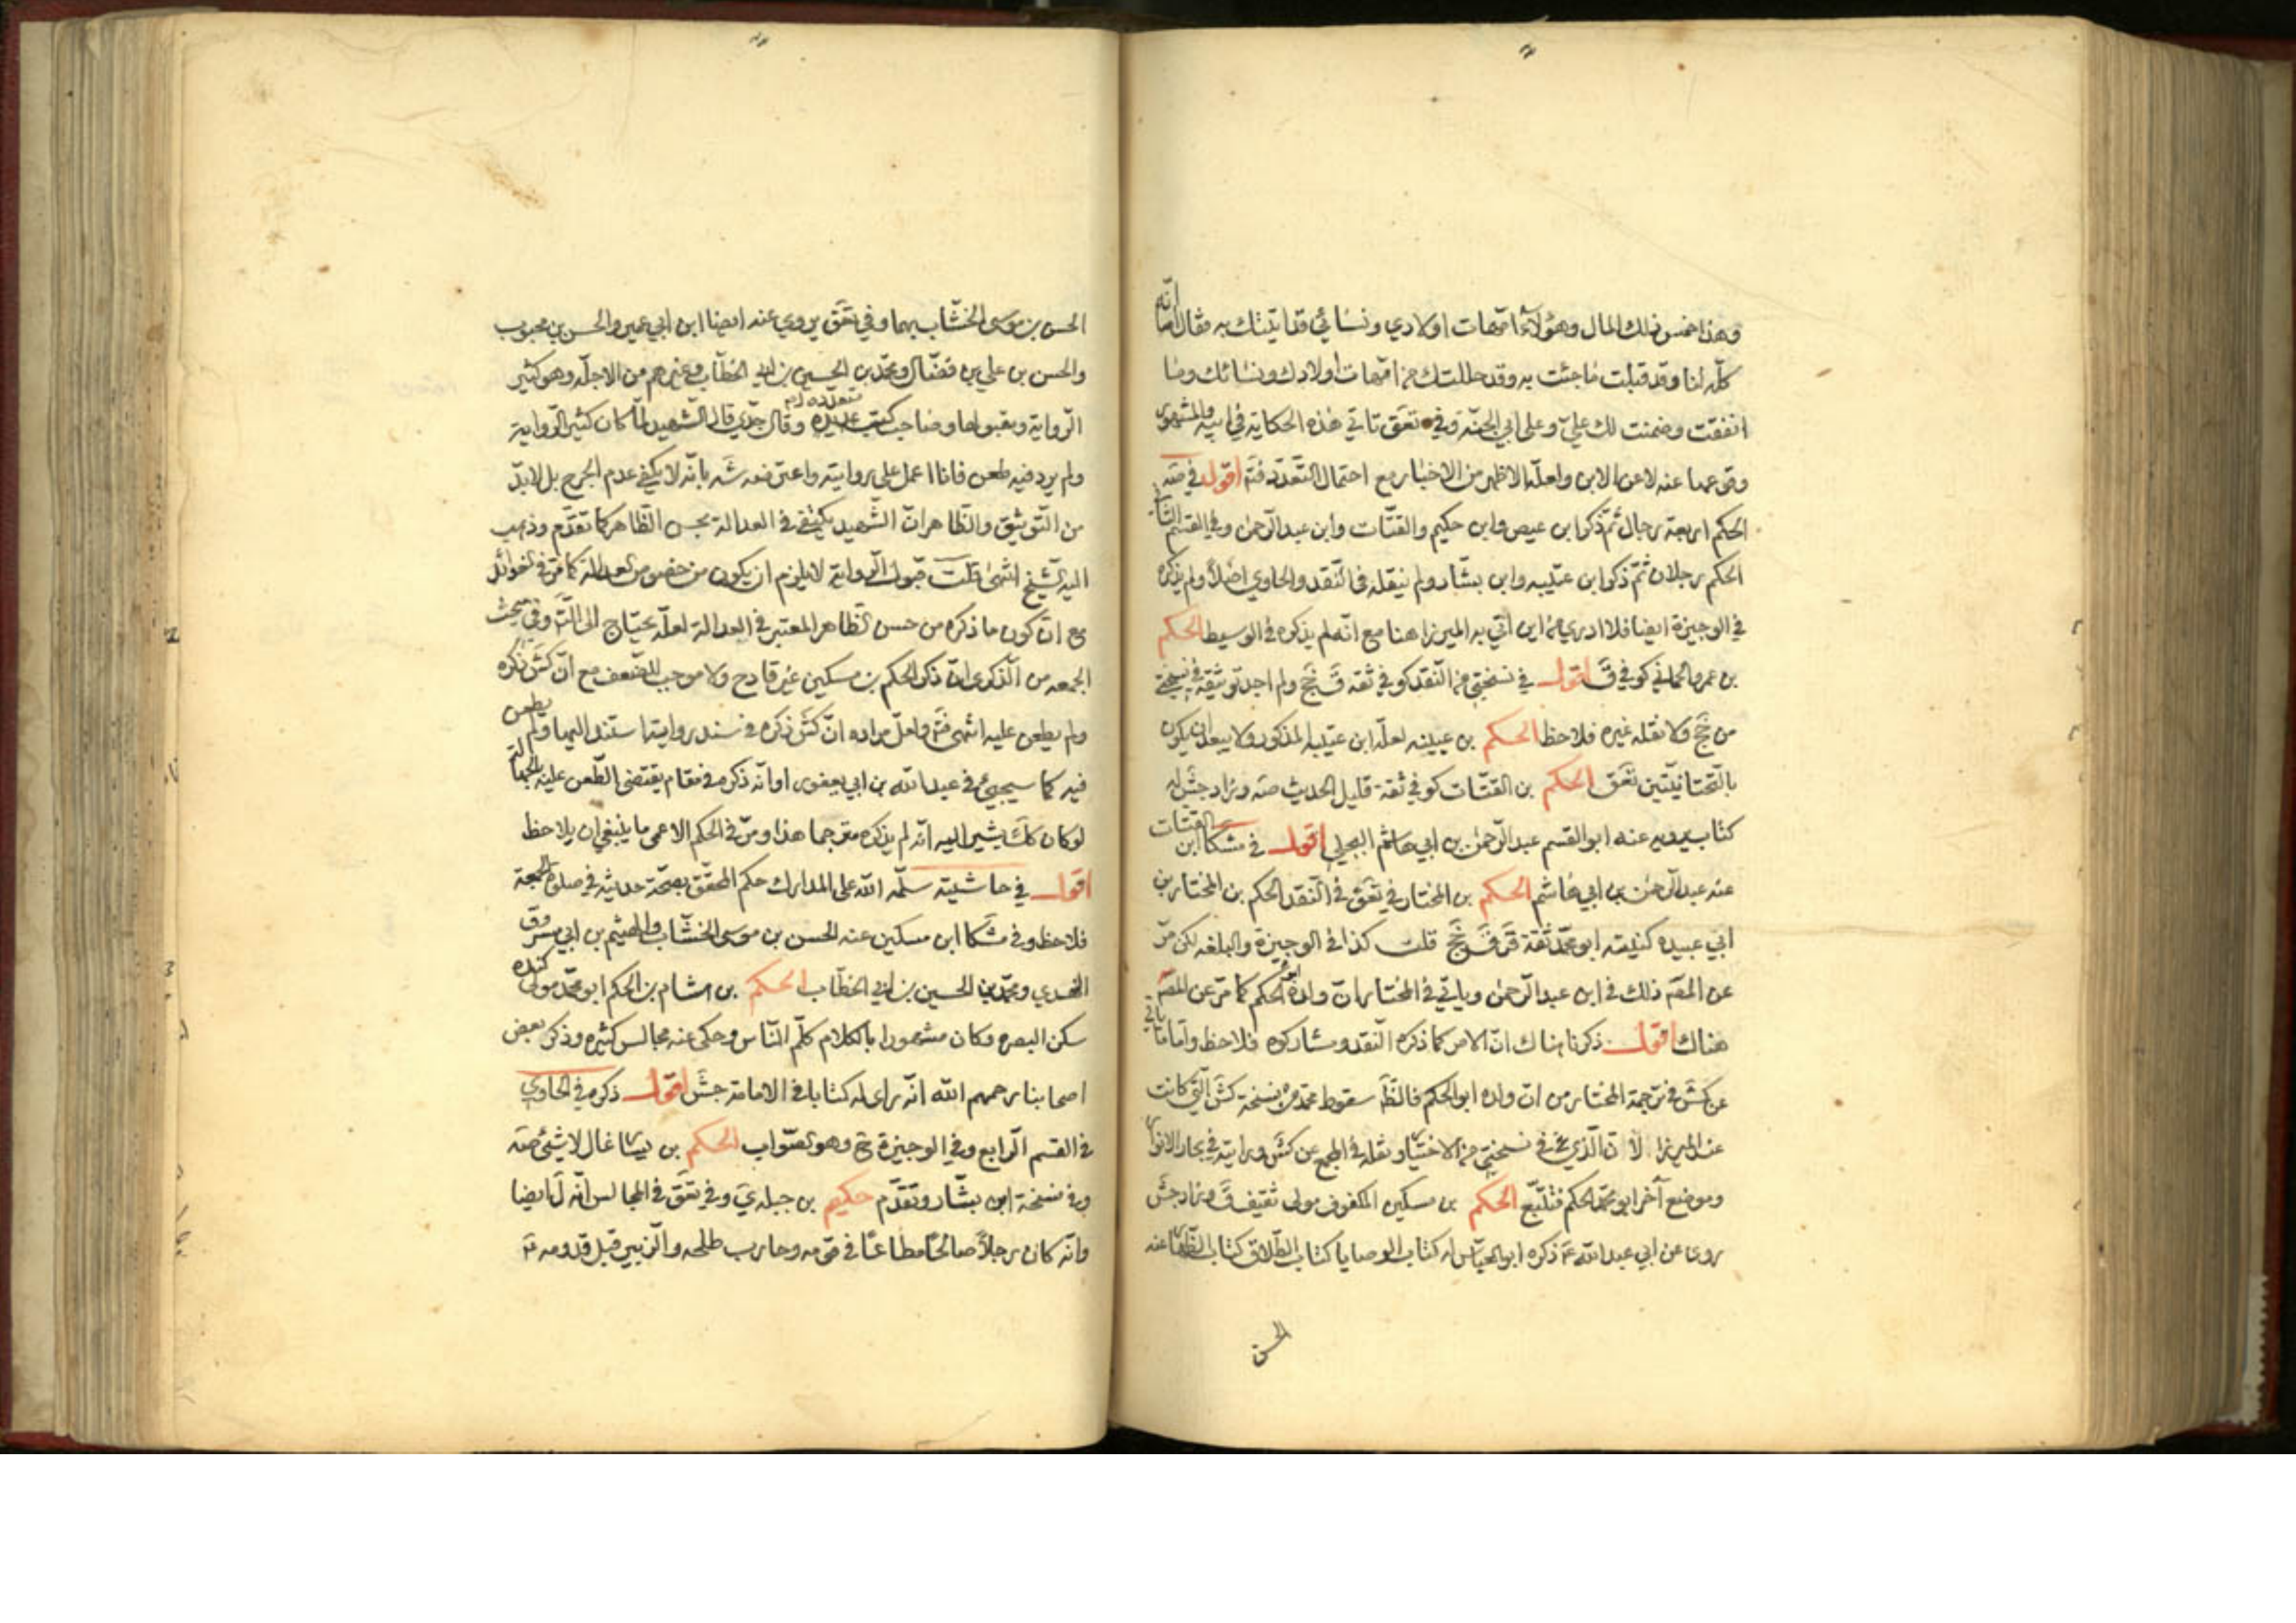 وهذا خمس ذلك المال وهؤلاء امّهات اولادي ونسائي قد اتيتك به فقال اما انّه
كلّه لنا وقد قبلت ما جئت به وقد حللتك من امّهات اولادك ونسائك وما
انفقت وضمنت لك عليّ وعلى ابي الجنّة وفي تعق تاتي هذه الحكاية في ابيه والمشهور
وقوعها عنه لا عن الابن ولعلّه الاظهر من الاخبار مع احتمال التعدّد فتم اقول في ضه
الحكم اربعة رجال ثمّ ذكر ابن عيص وابن حكيم والقتّات وابن عبد الرّحمن وفي القسم الثاني
الحكم رجلان ثمّ ذكر ابن عتيبه وابن بشار ولم ينقله في النّقد والحاوي اصلا ولم يذكره
في الوجيزة ايضا فلا ادري من اين اتي به الميرزا هنا مع انّه لم يذكره في الوسيط الحكم
بن عمرو الحماني كوفي ق اقول في نسختي من النّقد كوفي ثقة ق جخ ولم اجد توثيقه في نسختي
من جخ ولا نقله غيره فلاحظ الحكم بن عيينه لعلّه ابن عتيبه المذكور ولا يبعد ان يكون
بالتّحتانيّتين تعق الحكم بن القتّات كوفي ثقة قليل الحديث صه وزاد جش له
كتاب يرويه عنه ابو القسم عبد الرّحمن بن ابي هاشم البجلي اقول في مشكا ابن القتات
عنه عبد الرّحمن بن ابي هاشم الحكم بن المختار في تعق في النّقد الحكم بن المختار بن
ابي عبيده كنيته ابو محمّد ثقة قر ق جخ قلت كذا في الوجيزة والبلغه لكن مرّ
عن المصّه ذلك في ابن عبد الرّحمن وياتي في المختار ان ولده ابو الحكم كما مرّ عن المصّه
هناك اقول ذكرنا هناك انّ الامر كما ذكره النّقد ومشاركوه فلاحظ وامّا ما ياتي
عن كش في ترجمة المختار من ان ولده ابو الحكم فالظّ سقوط محمّد من نسخة كش الّتي كانت
عند الميرزا لانّ الّذي في نسختي من الاختيار ونقله في المجمع عن كش ورايته في بحار الانوار
وموضع آخر ابو محمّد الحكم فتتبّع الحكم بن مسكين المكفوف مولى ثقيف ق وزاد جش
روى عن ابي عبد الله ع ذكره ابو العبّاس له كتاب الوصايا كتاب الطّلاق كتاب الظّهار عنه
الحسن
الحسن بن موسى الخشّاب بها وفي تعق يروي عنه ايضا ابن ابي عمير والحسن بن محبوب
والحسن بن علي بن فضّال ومحمّد بن الحسين بن ابي الخطّاب وغيرهم من الاجلّه وهو كثير
الرّواية ومقبولها وصاحب كتب عديده وقال جدّي قال الشّهيد لمّا كان كثير الرّواية
ولم يرد فيه طعن فانا اعمل على روايته واعترضه شه بانّه لا يكفي عدم الجرح بل لابدّ
من التّوثيق والظّاهر انّ الشّهيد يكتفي في العدالة بحسن الظّاهر كما تقدّم وذهب
اليه الشّيخ انتهى قلت قبول الرّواية لا يلزم ان يكون من خصوص العدالة كما مرّ في الفوائد
مع انّ كون ما ذكره من حسن الظّاهر المعتبر في العدالة لعلّه يحتاج الى التّامّل وفي مبحث
الجمعه من الذّكرى انّ ذكر الحكم بن مسكين غير قادح ولا موجب للضّعف مع انّ كش ذكره
ولم يطعن عليه انتهى فتم ولعلّ مراده انّ كش ذكره في سند رواية استند اليها ولم يطعن
فيه كما سيجيئ في عبد الله بن ابي يعفور او انّه ذكره في مقام يقتضى الطّعن عليه بالجهالة
لو كان كك يشير اليه انّه لم يذكره مترجما هذا ومرّ في الحكم الاعمى ما ينبغي ان يلاحظ
اقول في حاشيته سلّمه الله على المدارك حكم المحقّق بصحّة حديثه في صلوة الجمعة
فلاحظ وفي مشكا ابن مسكين عنه الحسن بن موسى الخشّاب والهيثم بن ابي مسروق
النهدي ومحمّد بن الحسين بن ابي الخطّاب الحكم بن هشام بن الحكم ابو محمّد مولى كنده
سكن البصره وكان مشهورا بالكلام كلّم النّاس وحكى عنه مجالس كثيره وذكر بعض
اصحابنا رحمهم الله انّه راى له كتابا في الامامة جش اقول ذكره في الحاوي
في القسم الرّابع وفي الوجيزة ح وهو الصّواب الحكم بن يسار غال لا شئ صه
وفي نسخة ابن بشّار وتقدّم حكيم بن جبله ي وفي تعق في المجالس انّه ل ايضا
وانّه كان رجلا صالحًا مطاعًا في قومه وحارب طلحه والزّبير قبل قدومه ع